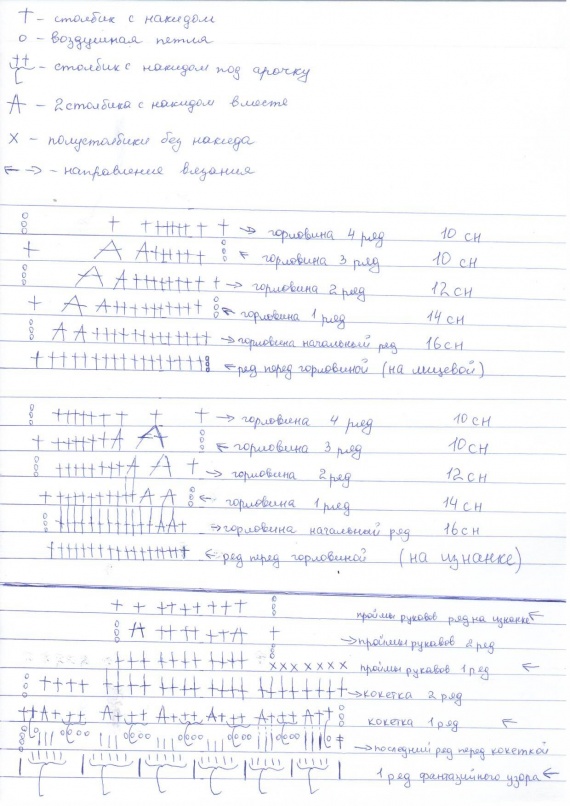 † – столбик с накидом
o – воздушная петля
– столбик с накидом под арочку
A – 2 столбика с накидом вместе
x – полустолбики без накида
← → – направление вязания
→ горловина 4 ряд 10 сн
← горловина 3 ряд 10 сн
→ горловина 2 ряд 12 сн
← горловина 1 ряд 14 сн
→ горловина начальный ряд 16 сн
← ряд перед горловиной (на лицевой)
→ горловина 4 ряд 10 сн
← горловина 3 ряд 10 сн
→ горловина 2 ряд 12 сн
← горловина 1 ряд 14 сн
→ горловина начальный ряд 16 сн
← ряд перед горловиной (на изнанке)
проймы рукавов ряд на изнанке ←
→ проймы рукавов 2 ряд
проймы рукавов 1 ряд ←
→ кокетка 2 ряд
кокетка 1 ряд ←
→ последний ряд перед кокеткой
1 ряд фантазийного узора ←